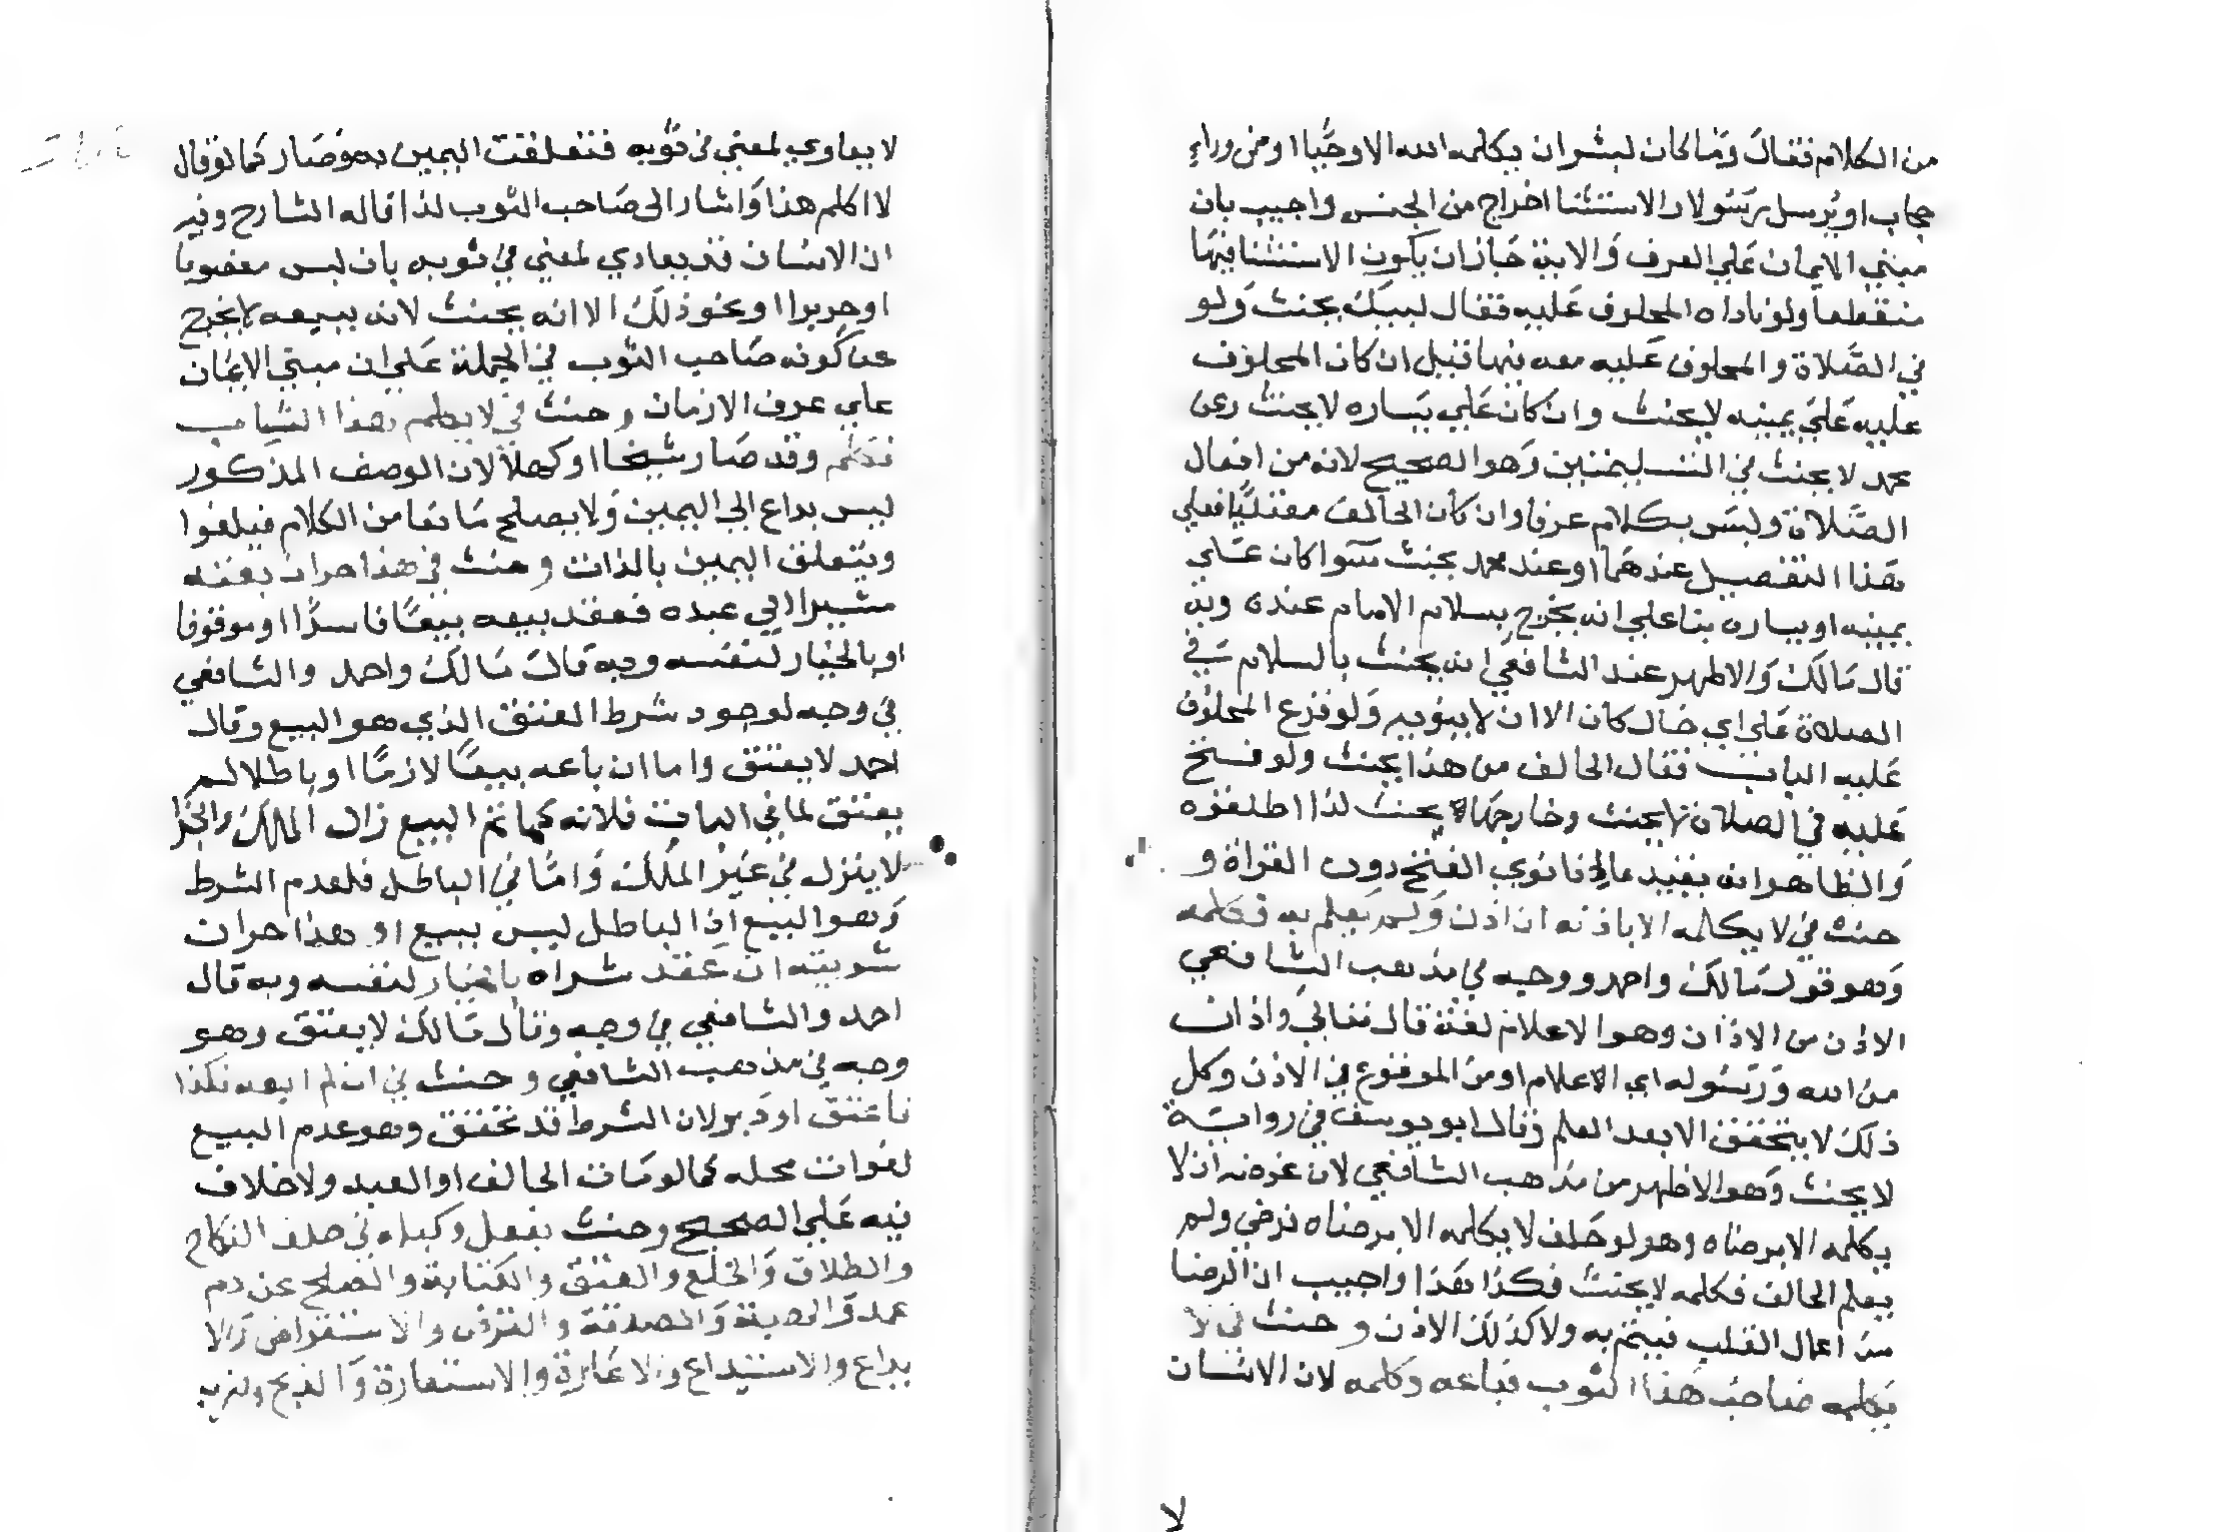 من الكلام فقال وما كان لبشر ان يكلمه الله الا وحيا او من وراء
حجاب او يرسل رسولا والاستثنا اخراج من الجنس واجيب بان
مبني الايمان علي العرف والاية جازان يكون الاستثنا فيها
منقطعا ولو ناداه المحلوف عليه فقال لبيك يحنث ولو
في الصلاة والمحلوف عليه معه فيها قيل ان كان المحلوف
عليه علي يمينه لا يحنث وان كان علي يساره لا يحنث وعن
محمد لا يحنث في التسليمتين وهو الصحيح لانه من افعال
الصلاة وليس بكلام عرفا وان كان الحالف مقتديا فعلي
هذا التفصيل عندهما وعند محمد يحنث سوا كان علي
يمينه او يساره بنا علي انه يخرج بسلام الامام عنده وبه
قال مالك والاظهر عند الشافعي انه يحنث بالسلام في
الصلاة علي اي حال كان الا ان لا ينويه ولو قرع المحلوف
عليه الباب فقال الحالف من هذا يحنث ولو فتح
عليه في الصلاة لا يحنث وخارجها يحنث لذا اطلقوه
والظاهر انه يفيد بما اذا نوي الفتح دون القراة و
حنث في لا يكلمه الا باذنه ان اذن ولم يعلم به فكلمه
وهو قول مالك واحمد ووجه في مذهب الشافعي
الاذن من الاذان وهو الاعلام لغة قال تعالي واذان
من الله ورسوله اي الاعلام او من الموقوع في الاذن وكل
ذلك لا يتحقق الا بعد العلم وقال ابو يوسف في رواية
لا يحنث وهو الاظهر من مذهب الشافعي لان غرضه ان لا
يكلمه الا برضاه وهو لو حلف لا يكلمه الا برضاه فرضي ولم
يعلم الحالف فكلمه لا يحنث فكذا هذا واجيب ان الرضا
من اعمال القلب فيتم به ولا كذلك الاذن وحنث في لا
يكلمه صاحب هذا الثوب فباعه وكلمه لان الانسان
لا
لا يعادي لمعني في ثوبه فتعلقت اليمين به وصار كما لو قال
لا اكلم هذا واشار الي صاحب الثوب لذا قاله الشارح وفيه
ان الانسان قد يعادي لمعني في ثوبه بان لبس مغصوبا
او حريرا او نحو ذلك الا انه يحنث لانه ببيعه لا يخرج
عن كونه صاحب الثوب في الجملة علي ان مبني الايمان
علي عرف الازمان وحنث في لا يكلم هذا الشاب
فكلم وقد صار شيخا او كهلا لان الوصف المذكور
ليس بداع الي اليمين ولا يصلح مانعا من الكلام فيلغوا
ويتعلق اليمين بالذات وحنث في هذا حر ان بعته
مشيرا الي عبده فعقد بيعه بيعا فاسدا او موقوفا
او بالخيار لنفسه وبه قال مالك واحمد والشافعي
في وجه لوجود شرط العتق الذي هو البيع وقال
احمد لا يعتق واما ان باعه بيعا لازما او باطلا لم
يعتق لما في البات فلانه كما تم البيع زال الملك والجزا
لا ينزل في غير الملك واما في الباطل فلعدم الشرط
وهو البيع اذا الباطل ليس ببيع او هذا حر ان
شريته ان عقد شراه بالخيار لنفسه وبه قال
احمد والشافعي في وجه وقال مالك لا يعتق وهو
وجه في مذهب الشافعي وحنث في ان لم ابعه فكذا
فاعتق او دبر لان الشرط قد تحقق وهو عدم البيع
لفوات محله كما لو مات الحالف او العبد ولا خلاف
فيه علي الصحيح وحنث بفعل وكيله في حلف النكاح
والطلاق والخلع والعتق والكتابة والصلح عن دم
عمد والهبة والصدقة والقرض والاستقراض والا
يداع والاستيداع والاعارة والاستعارة والذبح وضرب